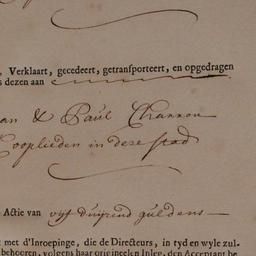 , Verklaart, gecedeert, getransporteert, en opgedragen
s dezen aan
an & Paul Channon
Cooplieden in deze stad
Actie van vyf duyzend guldens
t met d'Inroepinge, die de Directeurs, in tyd en wyle zul-
behooren, volgens haar origineelen Inleg, den Acceptant be